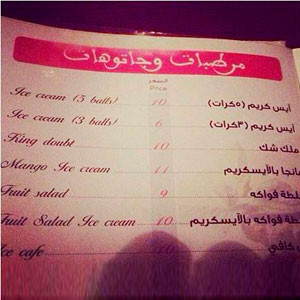 مرطبات وجاتوهات
السعر
Price
Ice cream (5 balls) 10 آيس كريم (٥كرات)
Ice cream (3 balls) 6 آيس كريم (٣كرات)
King doubt 10 ملك شك
Mango Ice cream 11 مانجا بالآيسكريم
Fruit salad 9 سلطة فواكه
Fruit Salad Ice cream 10 سلطة فواكه بالآيسكريم
Ice cafe 10